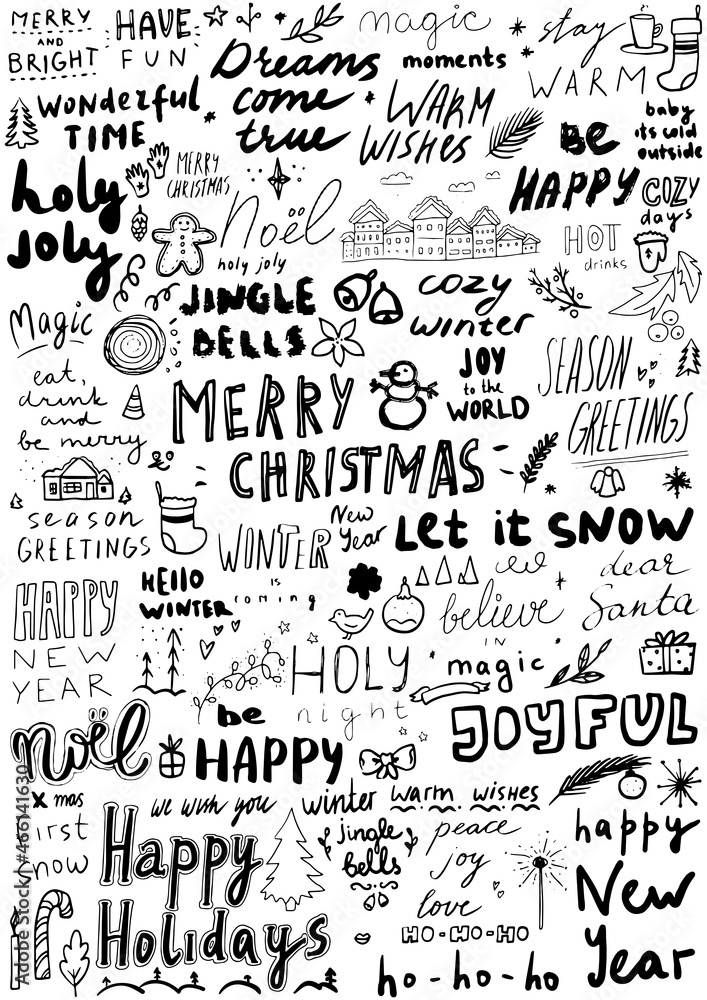 MERRY
AND
BRIGHT
HAVE
FUN
magic
moments
stay
WARM
Dreams
come
true
wonderful
TIME
WARM
WISHES
BE
HAPPY
baby
its cold
outside
holy
joly
MERRY
CHRISTMAS
Noël
holy joly
COZY
days
HOT
drinks
Magic
JINGLE
BELLS
cozy
winter
eat,
drink
and
be merry
MERRY
CHRISTMAS
JOY
to the
WORLD
SEASON
GREETINGS
season
GREETINGS
WINTER
IS
coming
New
Year
Let it SNOW
HAPPY
NEW
YEAR
HELLO
WINTER
believe
IN
magic
dear
Santa
HOLY
night
noël
be
HAPPY
JOYFUL
x mas
we wish you
winter
warm wishes
first
snow
Happy
Holidays
jingle
bells
peace
joy
love
HO-HO-HO
ho-ho-ho
happy
New
Year
Adobe Stock | #466141630